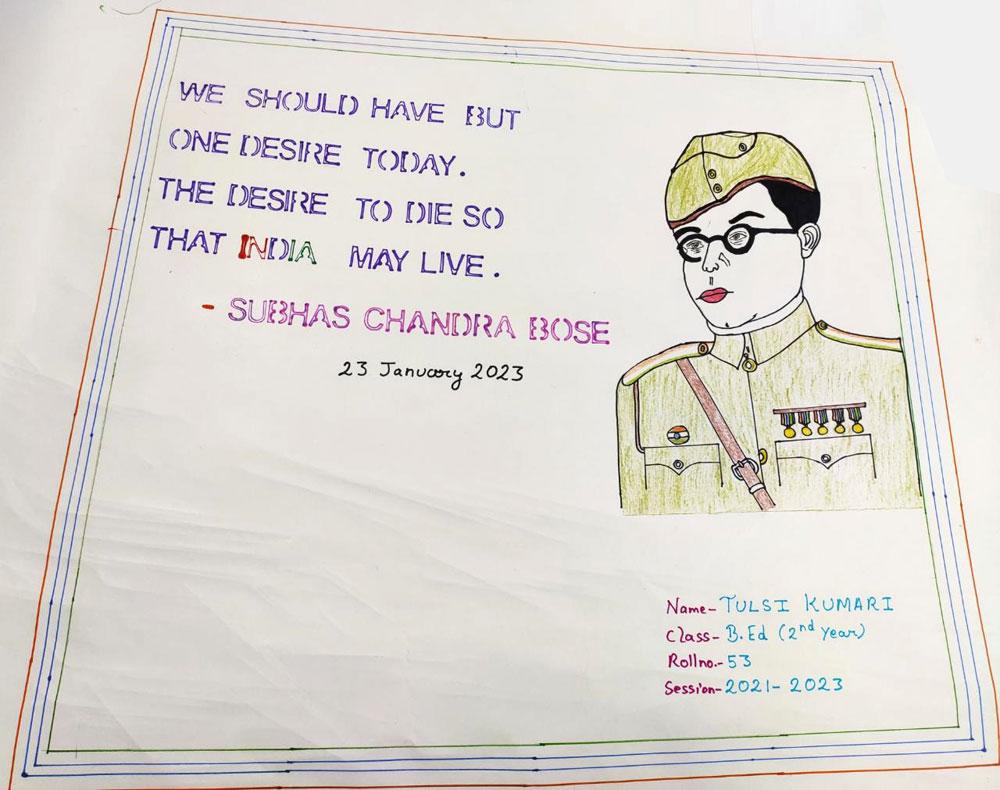 WE SHOULD HAVE BUT
ONE DESIRE TODAY.
THE DESIRE TO DIE SO
THAT INDIA MAY LIVE.
- SUBHAS CHANDRA BOSE
23 January 2023
Name- TULSI KUMARI
Class- B.Ed (2nd Year)
Rollno.- 53
Session- 2021- 2023